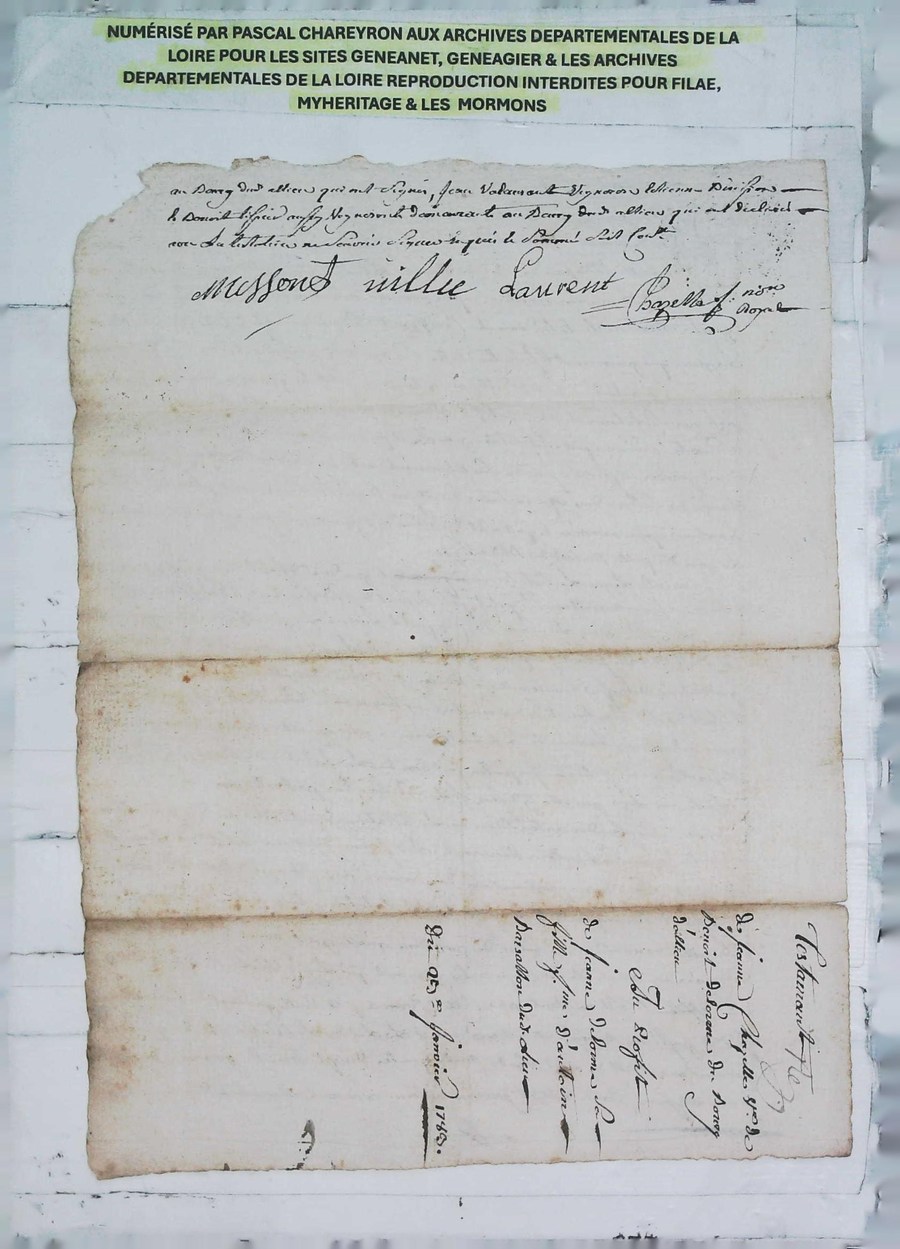 NUMÉRISÉ PAR PASCAL CHAREYRON AUX ARCHIVES DEPARTEMENTALES DE LA
LOIRE POUR LES SITES GENEANET, GENEAGIER & LES ARCHIVES
DEPARTEMENTALES DE LA LOIRE REPRODUCTION INTERDITES POUR FILAE,
MYHERITAGE & LES MORMONS
au Bourg dud allieu qui ont signés, Jean Vigneron Etienne
& Benoit tissier aussy Vignerons demeurant au Bourg dud allieu qui ont declaré
La testatrice ne Sçavoir Signer
Messont nillie Laurent Chazelle
Royal
Testament
de Jeanne Chazelle Vve de
Benoit delorme du Bourg
dallieu
Au Profit
de Jeanne delorme Sa
fille f.me d'antoine
dud. Lieu
Du 25e Janvier 1783.